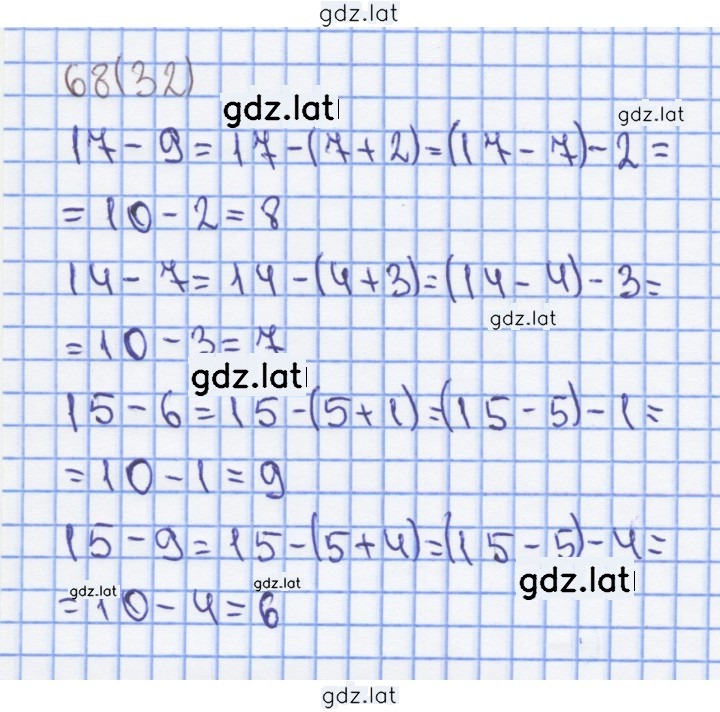 gdz.lat
68(32)
gdz.lat
gdz.lat
17 - 9 = 17 - (7 + 2) = (17 - 7) - 2 =
= 10 - 2 = 8
14 - 7 = 14 - (4 + 3) = (14 - 4) - 3 =
gdz.lat
= 10 - 3 = 7
gdz.lat
15 - 6 = 15 - (5 + 1) = (15 - 5) - 1 =
= 10 - 1 = 9
15 - 9 = 15 - (5 + 4) = (15 - 5) - 4 =
gdz.lat
gdz.lat
gdz.lat
= 10 - 4 = 6
gdz.lat